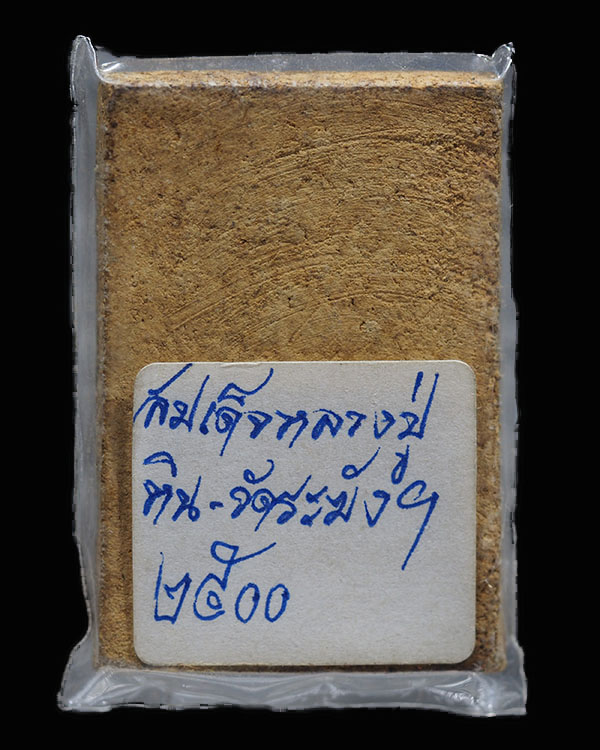 สมเด็จหลวงปู่
หิน-วัดระฆังฯ
๒๕๐๐